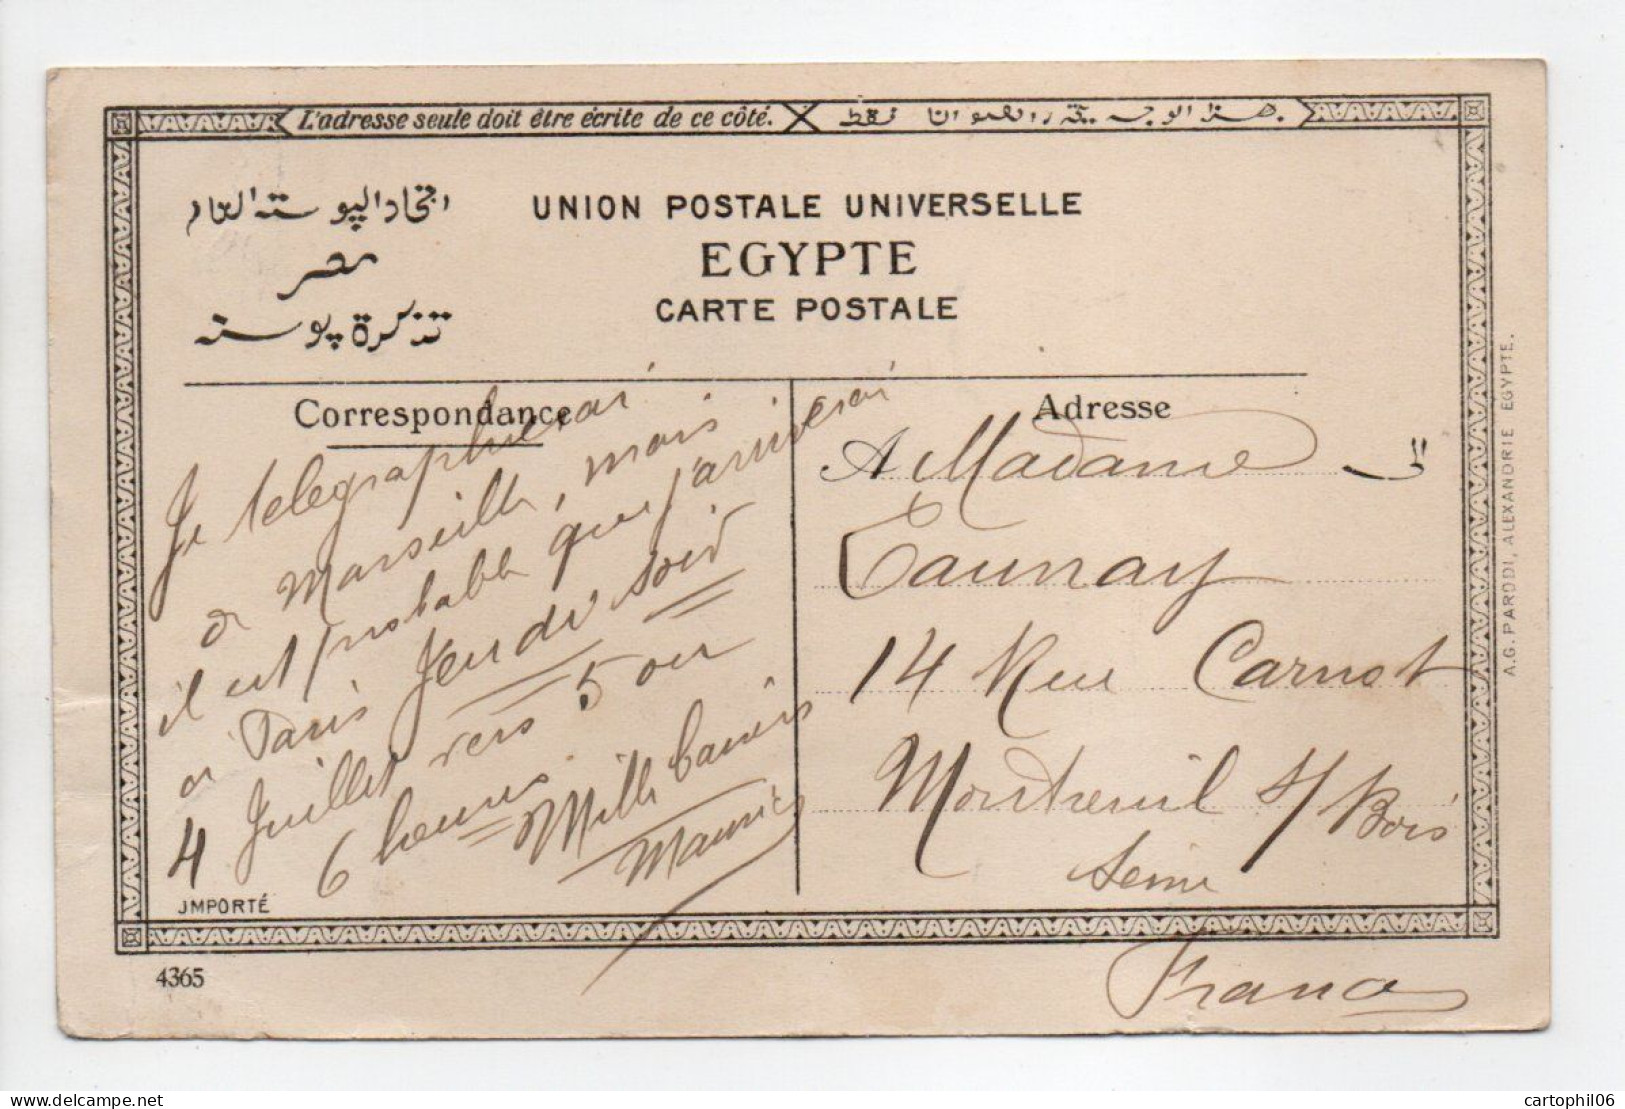 L'adresse seule doit être écrite de ce côté.
هـذا الوجـه يـقـدر العنوان فقط
UNION POSTALE UNIVERSELLE
اتحاد البوسته العام
EGYPTE
مصر
CARTE POSTALE
تذكرة بوسته
Correspondance
Adresse
الى
Je telegraphierai
a Marseille, mais
il est probable que j'arriverai
a Paris Jeudi soir
4 Juillet vers 5 ou
6 heures. Mille baisers
Maurice
A Madame
Taunay
14 Rue Carnot
Montreuil s/ Bois
Seine
France
JMPORTÉ
4365
A.G. PARODI, ALEXANDRIE EGYPTE.
Delcampe.net
cartophil06